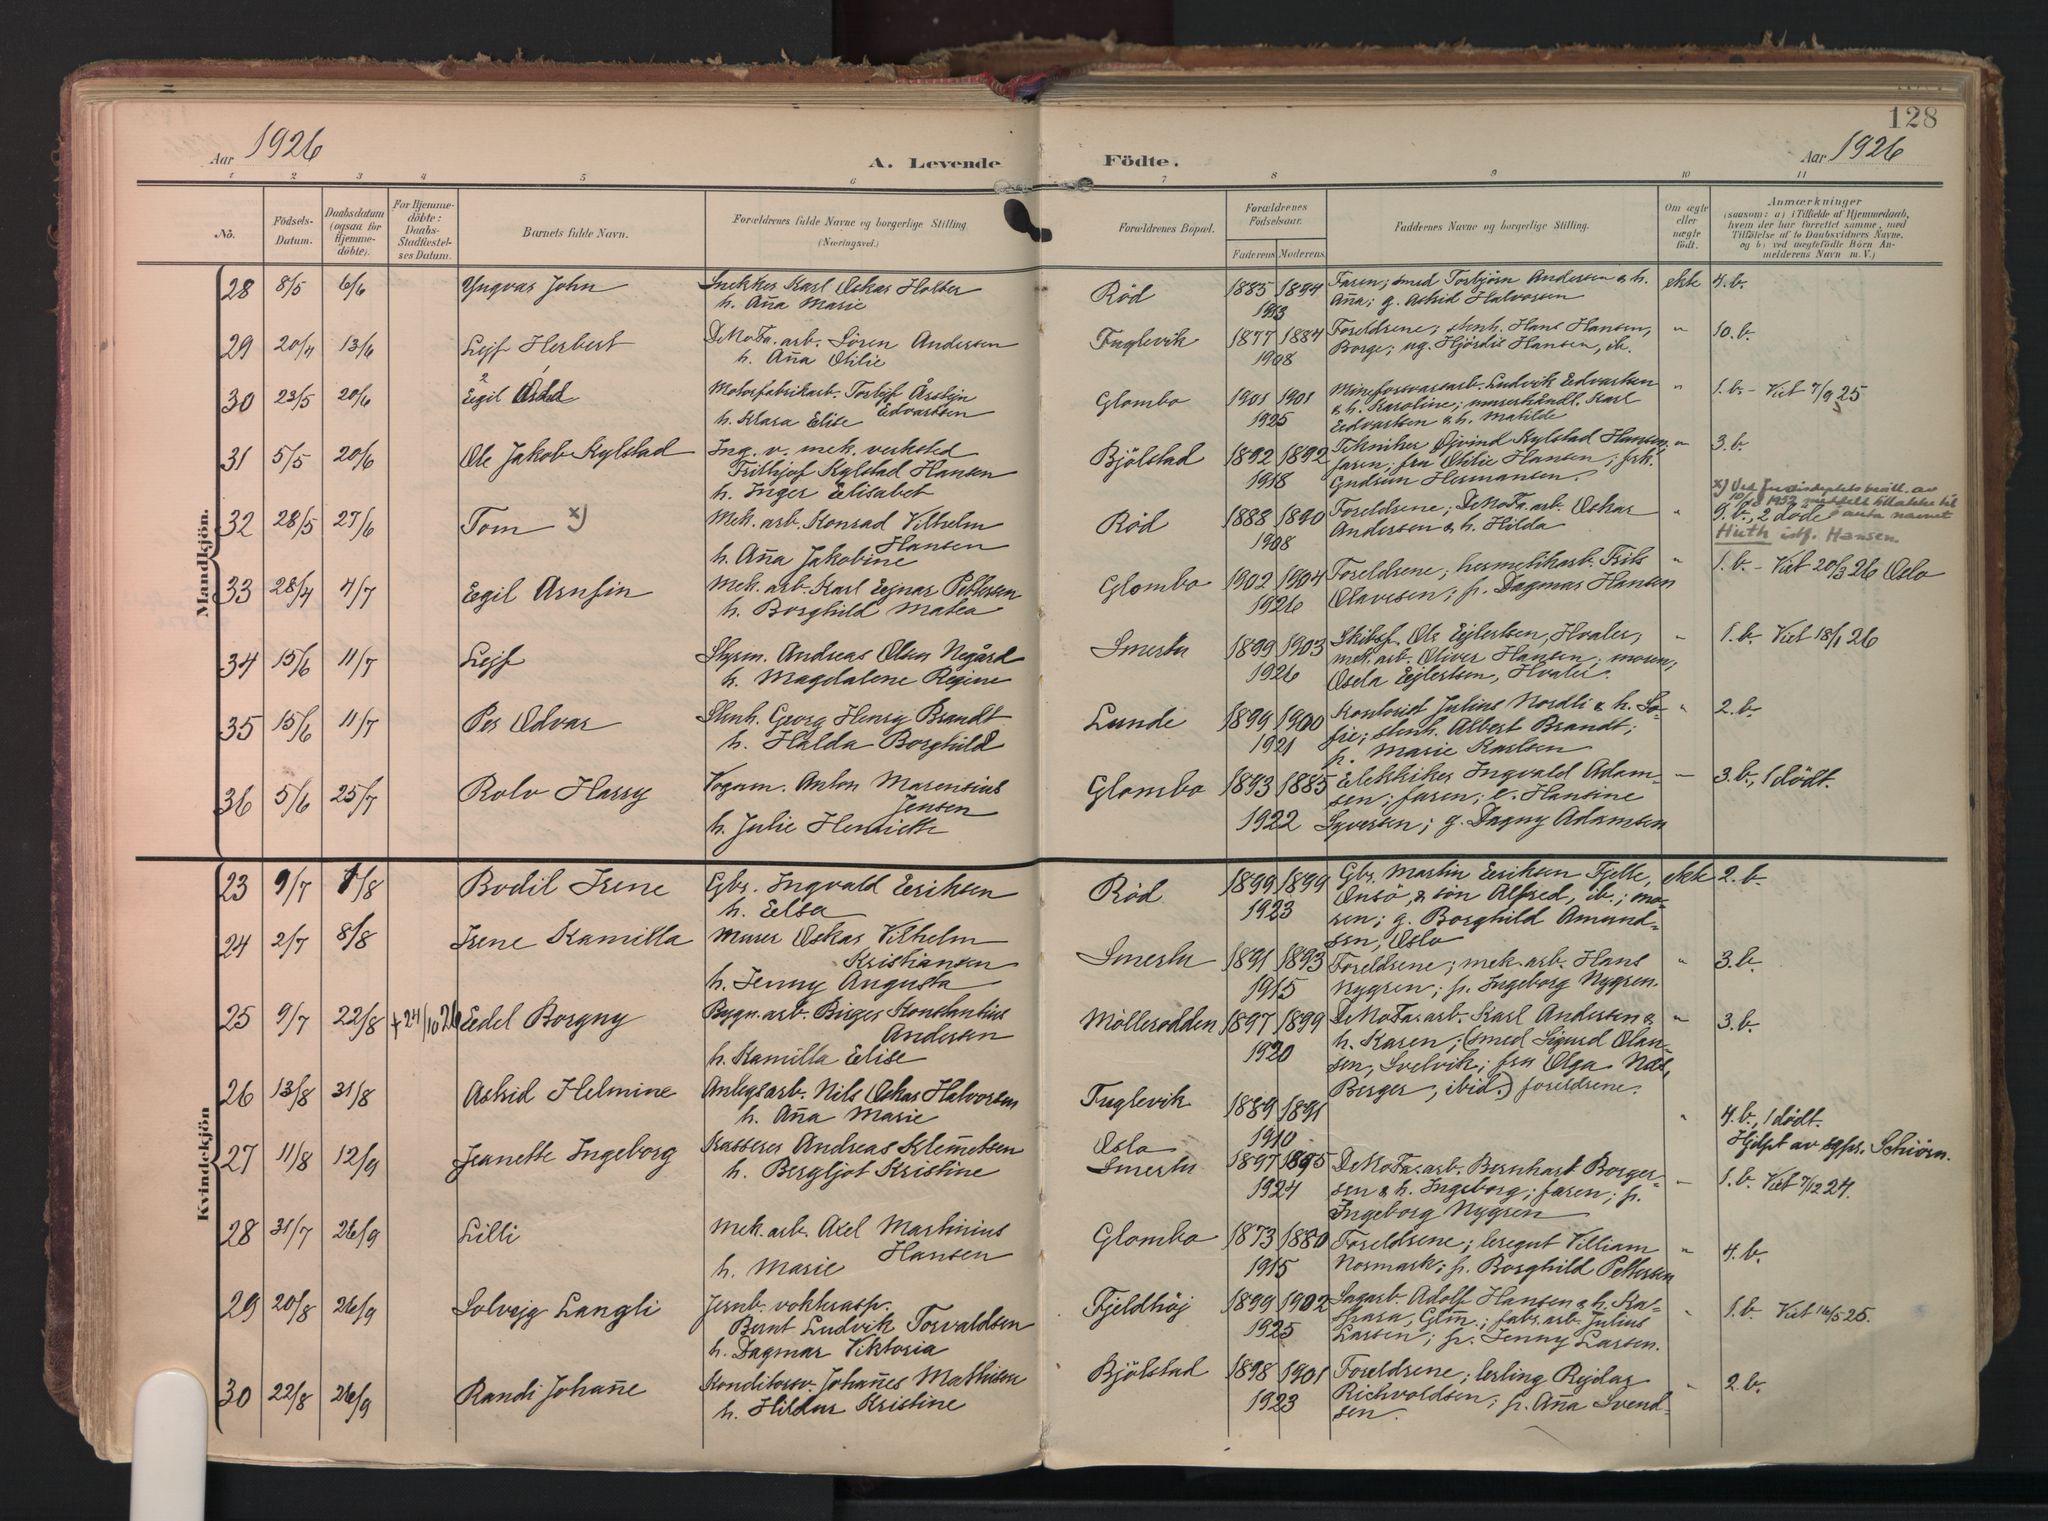 128
Aar 1926
A. Levende
Födte.
Aar 1926
1 2 3 4 5 6 7 8 9 10 11
No.
Födsels-
Datum.
Daabsdatum
(ogsaa för
Hjemme-
döbte).
For Hjemme-
döbte:
Daabs-
Stadfæstel-
ses Datum.
Barnets fulde Navn.
Forældrenes fulde Navne og borgerlige Stilling
(Næringsvei.)
Forældrenes Bopæl.
Forældrenes
Födselsaar.
Faderens Moderens
Faddernes Navne og borgerlige Stilling.
Om ægte
eller
uægte
født.
Anmærkninger
(saasom: a) i Tilfælde af Hjemmedaab,
hvem der har forrettet samme, med
Tilföielse af to Daabsvidners Navne,
og b) ved uægtefödte Börn An-
melderens Navn m. V.)
Mandkjön.
28 8/5 6/6 Yngvar John
Snekker Karl Oskar Holter
h. Aña Marie
Röd
1885 1894
1913
Faren; smed Torbjörn Andersen & h.
Aña; g. Astrid Halvorsen
ekte 4. b.
29 20/4 13/6 Lejf Herbert
DeNoFa. arb. Sören Andersen
h. Aña Otilie
Fuglevik
1877 1884
1908
Foreldrene; stenh. Hans Hansen,
Borge; ug. Hjördis Hansen, ib.
" 10. b.
30 23/5 20/6 Egil Odd
Motorfabrikarb. Torlejf Årstejn
Edvartsen
h. Klara Elise
Glombo
1901 1901
1925
Mineforsvarsarb. Ludvik Edvartsen
& h. Karoline; murerhåndl. Karl
Edvartsen & h. Matilde
" 1. b. - Viet 7/9 25
31 5/5 20/6 Ole Jakob Kylstad
Ing. v. mek. verksted
Fritjof Kylstad Hansen
h. Inger Elisabet
Bjölstad
1892 1892
1918
Tekniker Öjvind Kylstad Hansen,
faren; fru Otilie Hansen; frk.
Gudrun Hermansen.
" 3. b.
32 28/5 27/6 Tom x)
Mek. arb. Konrad Vilhelm
Hansen
h. Aña Jakobine
Röd
1888 1890
1908
Foreldrene; DeNoFa. arb. Oskar
Andersen & h. Hilda
x) Ved
10/10 1952 meddelt tillatelse til
å anta navnet
9. b., 2 döde
Huth istf. Hansen.
33 28/4 4/7 Egil Arnfin
Mek. arb. Karl Ejnar Pettersen
h. Borghild Matea
Glombo
1902 1904
1926
Foreldrene; hermetikarb. Frits
Olavesen; p. Dagmar Hansen
" 1. b. - Viet 20/3 26 Oslo
34 15/6 11/7 Lejf
Styrm. Andreas Olsen Negård
h. Magdalene Regine
Smertu
1899 1903
1926
Skibsf. Ole Ejlertsen, Hvaler;
mek. arb. Oliver Hansen; moren;
Osela Ejlertsen, Hvaler.
" 1. b. Viet 18/1 26
35 15/6 11/7 Per Odvar
Stenh. Georg Henry Brandt
h. Halda Borghild
Lunde
1899 1900
1921
Kontorist Julius Nordli & h. So-
fie; stenh. Albert Brandt;
p. Marie Karlsen
" 2. b.
36 5/6 25/7 Rolv Harry
Vognm. Anton Marensius
Jensen
h. Julie Henriette
Glombo
1893 1885
1922
Elektriker Ingvald Adam-
sen; faren; e. Hansine
Syversen; g. Dagny Adamsen
" 3. b., 1 dödt.
Kvindekjön
23 9/7 1/8 Bodil Irene
Gbr. Ingvald Eriksen
h. Elsa
Röd
1899 1899
1923
Gbr. Martin Eriksen Fjelle,
Onsö, & sön Alfred, ib.; mo-
ren; g. Borghild Amund-
sen, Oslo
ekte 2. b.
24 2/7 8/8 Irene Kamilla
Murer Oskar Vilhelm
Kristiansen
h. Jenny Augusta
Smertu
1891 1893
1915
Foreldrene; mek. arb. Hans
Nygren; p. Ingeborg Nygren.
" 3. b.
25 9/7 22/8 + 24/10 26 Edel Borgny
Bygn. arb. Birger Konstantius
Andersen
h. Kamilla Elise
Möllerodden
1897 1899
1920
DeNoFa. arb. Karl Andersen &
h. Karen; (smed Sigurd Olau-
sen, Svelvik; fru Olga Næs
Berger, ibid.) foreldrene.
" 3. b.
26 13/8 31/8 Astrid Helmine
Anlegsarb. Nils Oskar Halvorsen
h. Aña Marie
Fuglevik
1889 1891
1910
" 4. b., 1 dödt.
Hjdpt av sgpr. Schiörn.
27 11/8 12/9 Jeanette Ingeborg
Kasserer Andreas Klemetsen
h. Bergljot Kristine
Oslo
Smertu
1897 1895
1924
DeNoFa. arb. Bernhart Borger-
sen & h. Ingeborg; faren; p.
Ingeborg Nygren
" 1. b. Viet 7/12 24.
28 31/7 26/9 Lilli
Mek. arb. Axel Martinius
Hansen
h. Marie
Glombo
1873 1880
1915
Foreldrene; leregut Villiam
Normark; p. Borghild Pettersen
" 4. b.
29 20/8 26/9 Solvejg Langli
Jernb. vokterasp.
Bernt Ludvik Torvaldsen
h. Dagmar Viktoria
Fjeldhöj
1899 1902
1925
Sagarb. Adolf Hansen & h. Kas-
para, Glm.; fabr. arb. Julius
Larsen; p. Jenny Larsen.
" 1. b. Viet 16/5 25.
30 22/8 26/9 Randi Johañe
Konditorsv. Johañes Mathisen
h. Hildur Kristine
Bjölstad
1898 1901
1923
Foreldrene; lerling Rejdar
Richvoldsen; p. Aña Svend-
sen.
" 2. b.